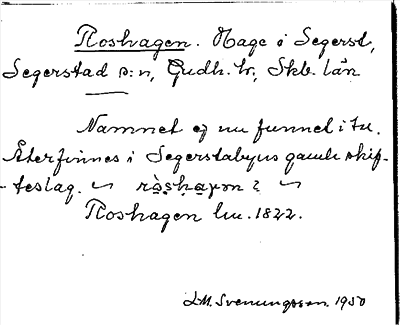 Roshagen. Hage i Segerst,
Segerstad s:n, Gudh. hr, Skb. län
Namnet ej nu funnet i tu.
Återfinnes i Segerstabyns gamla skif-
teslag. ~ ròshaγən? ~
Roshagen lm. 1822.
J.M. Svenungsson. 1950